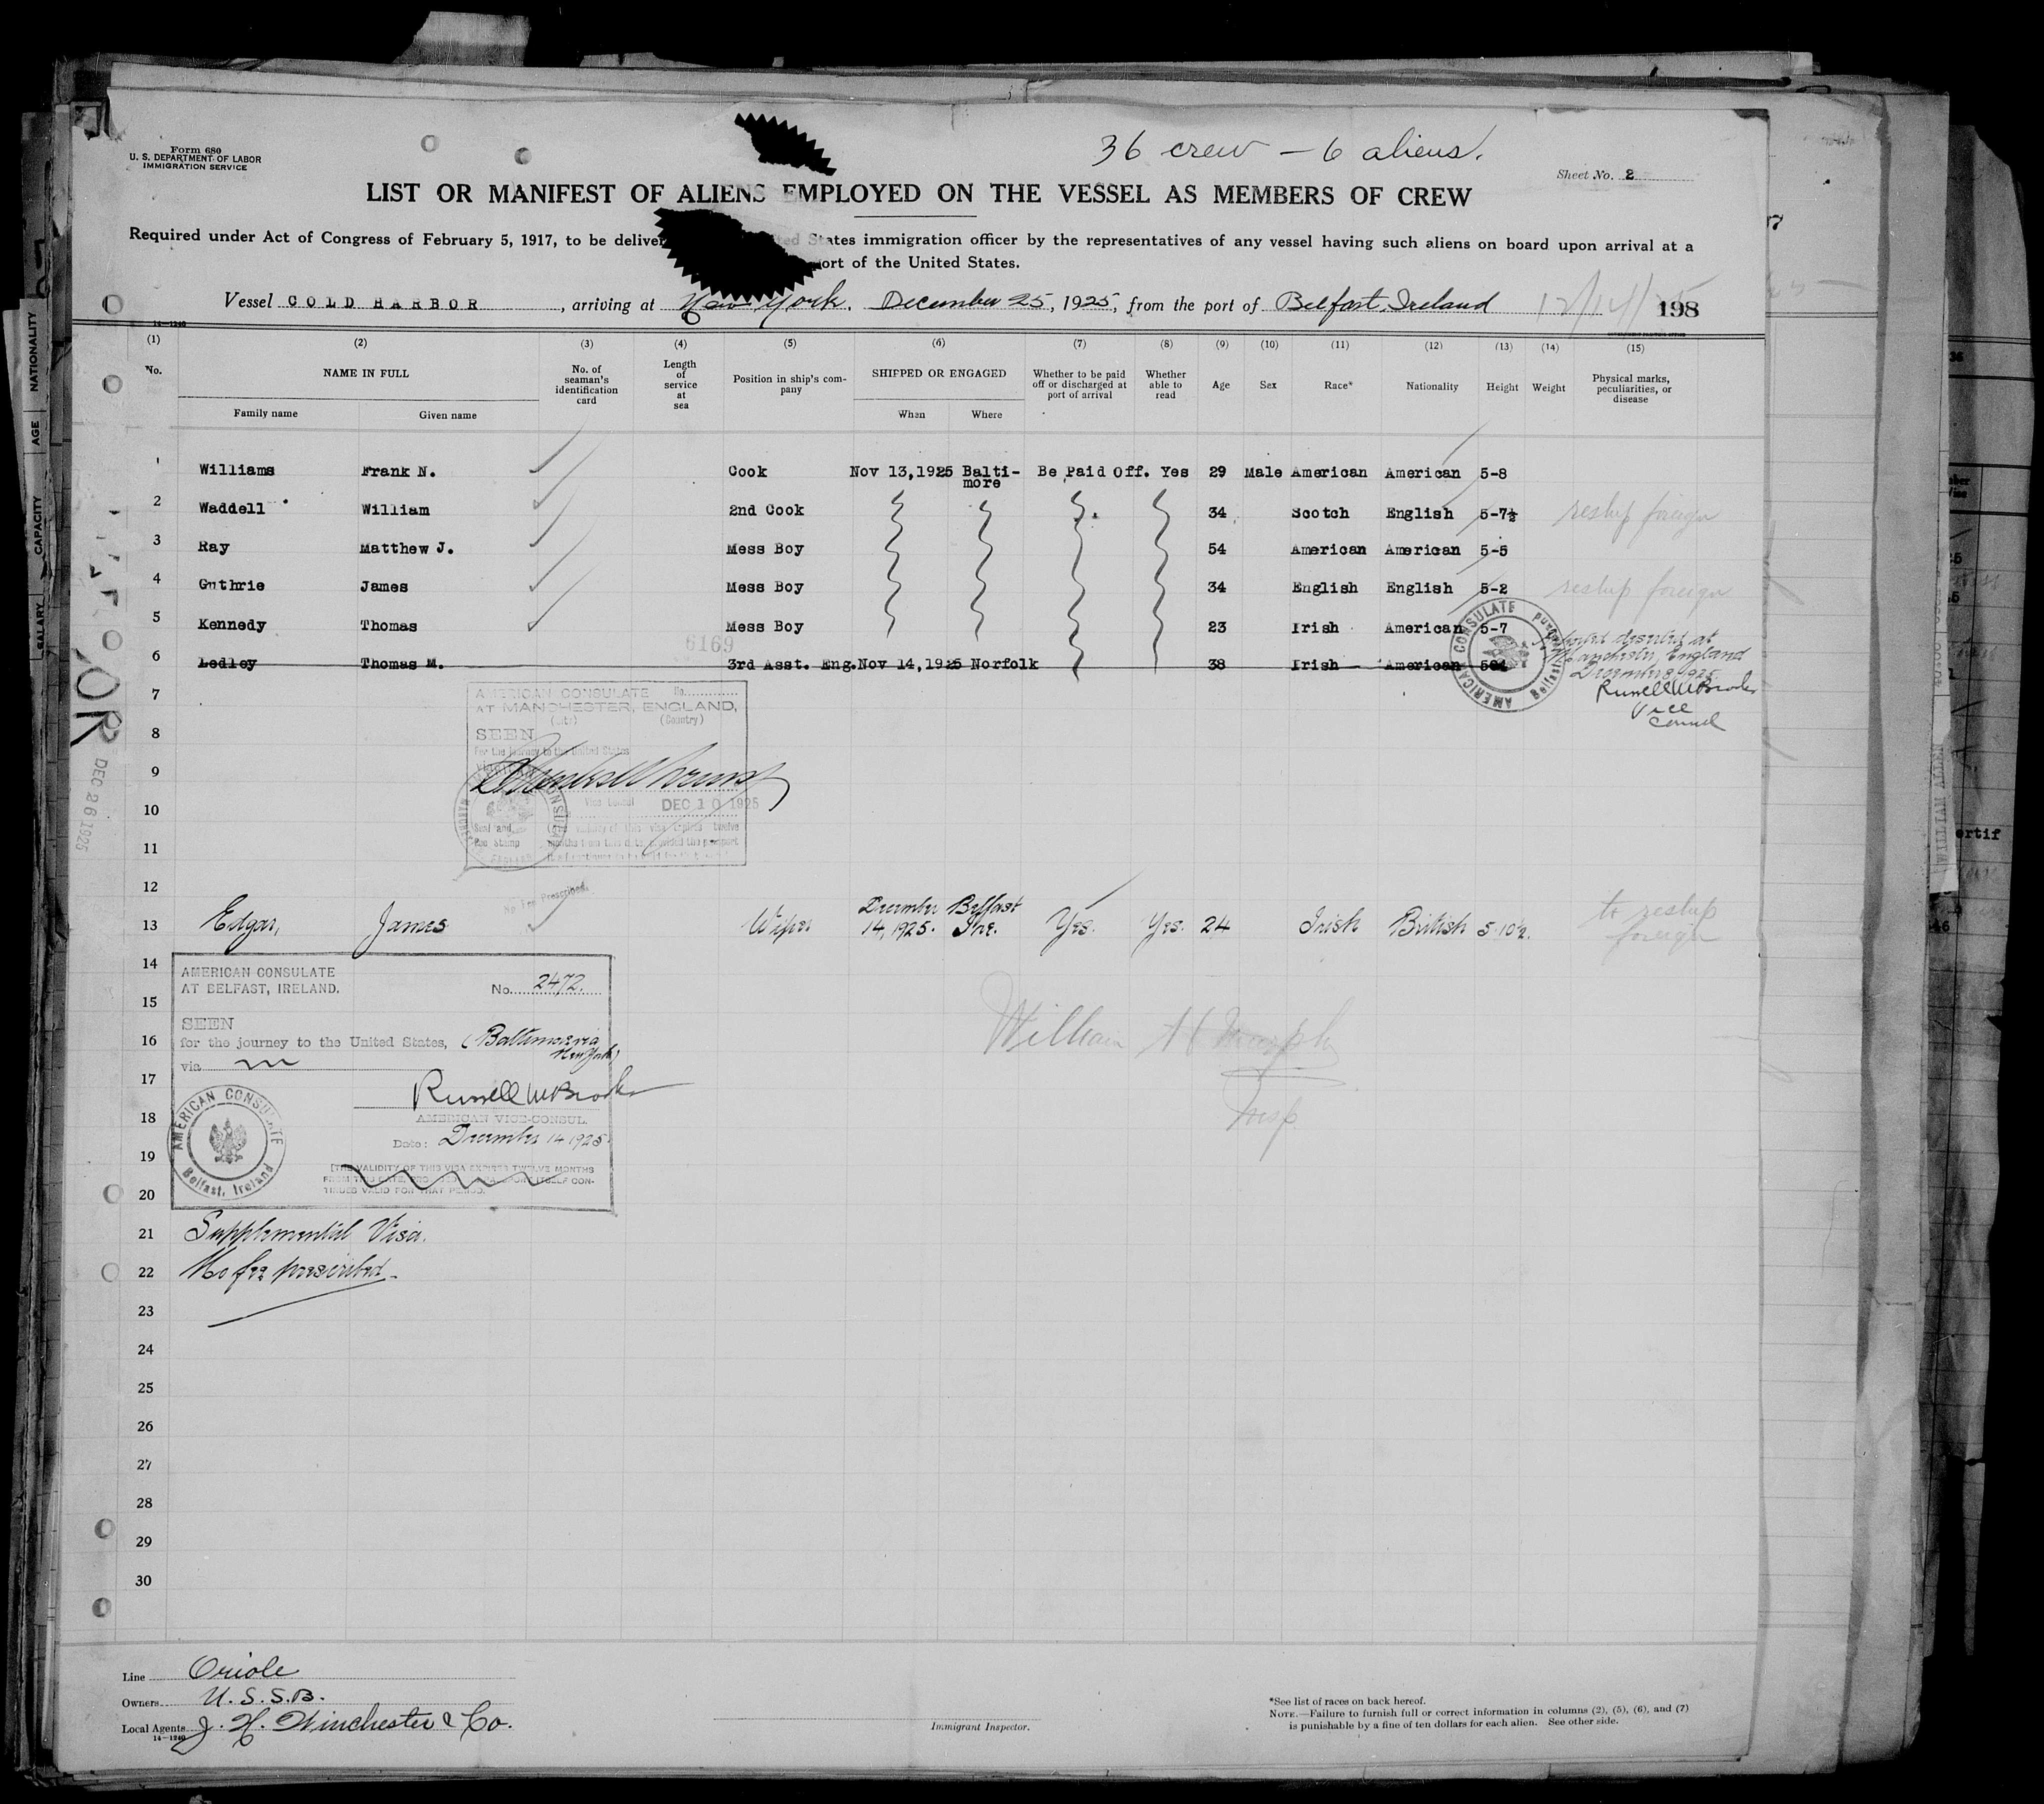 Form 680
U. S. DEPARTMENT OF LABOR
IMMIGRATION SERVICE
36 crew - 6 aliens.
Sheet No. 2
LIST OR MANIFEST OF ALIENS EMPLOYED ON THE VESSEL AS MEMBERS OF CREW
Required under Act of Congress of February 5, 1917, to be deliver ted States immigration officer by the representatives of any vessel having such aliens on board upon arrival at a
ort of the United States.
Vessel COLD HARBOR, arriving at New York, December 25, 1925, from the port of Belfast, Ireland 198
14-1240
(1) (2) (3) (4) (5) (6) (7) (8) (9) (10) (11) (12) (13) (14) (15)
No. NAME IN FULL No. of seaman's identification card Length of service at sea Position in ship's company SHIPPED OR ENGAGED Whether to be paid off or discharged at port of arrival Whether able to read Age Sex Race* Nationality Height Weight Physical marks, peculiarities, or disease
Family name Given name When Where
1 Williams Frank N. Cook Nov 13,1925 Baltimore Be Paid Off. Yes 29 Male American American 5-8
2 Waddell William 2nd Cook 34 Scotch English 5-7½ reship foreign
3 Ray Matthew J. Mess Boy 54 American American 5-5
4 Guthrie James Mess Boy 34 English English 5-2 reship foreign
5 Kennedy Thomas Mess Boy 23 Irish American 5-7
6169
6 Ledley Thomas M. 3rd Asst. Eng. Nov 14,1925 Norfolk 38 Irish American
deserted at
Manchester, England
December 8, 1925.
Russell M Brooks
Vice
Consul
AMERICAN CONSULATE
Belfast
7
AMERICAN CONSULATE No.
AT MANCHESTER, ENGLAND,
(City) (Country)
8
SEEN
For the journey to the United States
9
10
Vice Consul DEC 10 1925
Seal and
Fee Stamp
11
12
No Fee Prescribed.
13 Edgar, James Wiper December 14, 1925. Belfast Ire. Yes. Yes. 24 Irish British 5-10½. to reship foreign
14
AMERICAN CONSULATE
AT BELFAST, IRELAND.
No. 2472.
15
SEEN
16
for the journey to the United States, (Baltimore via New York)
via
William H Murphy
Insp
17
Russell M Brooks
18
AMERICAN VICE-CONSUL.
Date: December 14 1925.
AMERICAN CONSULATE
Belfast, Ireland
19
[THE VALIDITY OF THIS VISA EXPIRES TWELVE MONTHS
FROM THIS DATE, ITSELF CON-
TINUES VALID FOR THAT PERIOD.
20
21 Supplemental Visa.
22 No fee prescribed.
23
24
25
26
27
28
29
30
DEC 26 1925
Line Oriole
Owners U. S. S. B.
Local Agents J. H. Winchester & Co.
14-1240
Immigrant Inspector.
*See list of races on back hereof.
NOTE.—Failure to furnish full or correct information in columns (2), (5), (6), and (7)
is punishable by a fine of ten dollars for each alien. See other side.
NATIONALITY
AGE
CAPACITY
SALARY
WILLIAM ALLEN